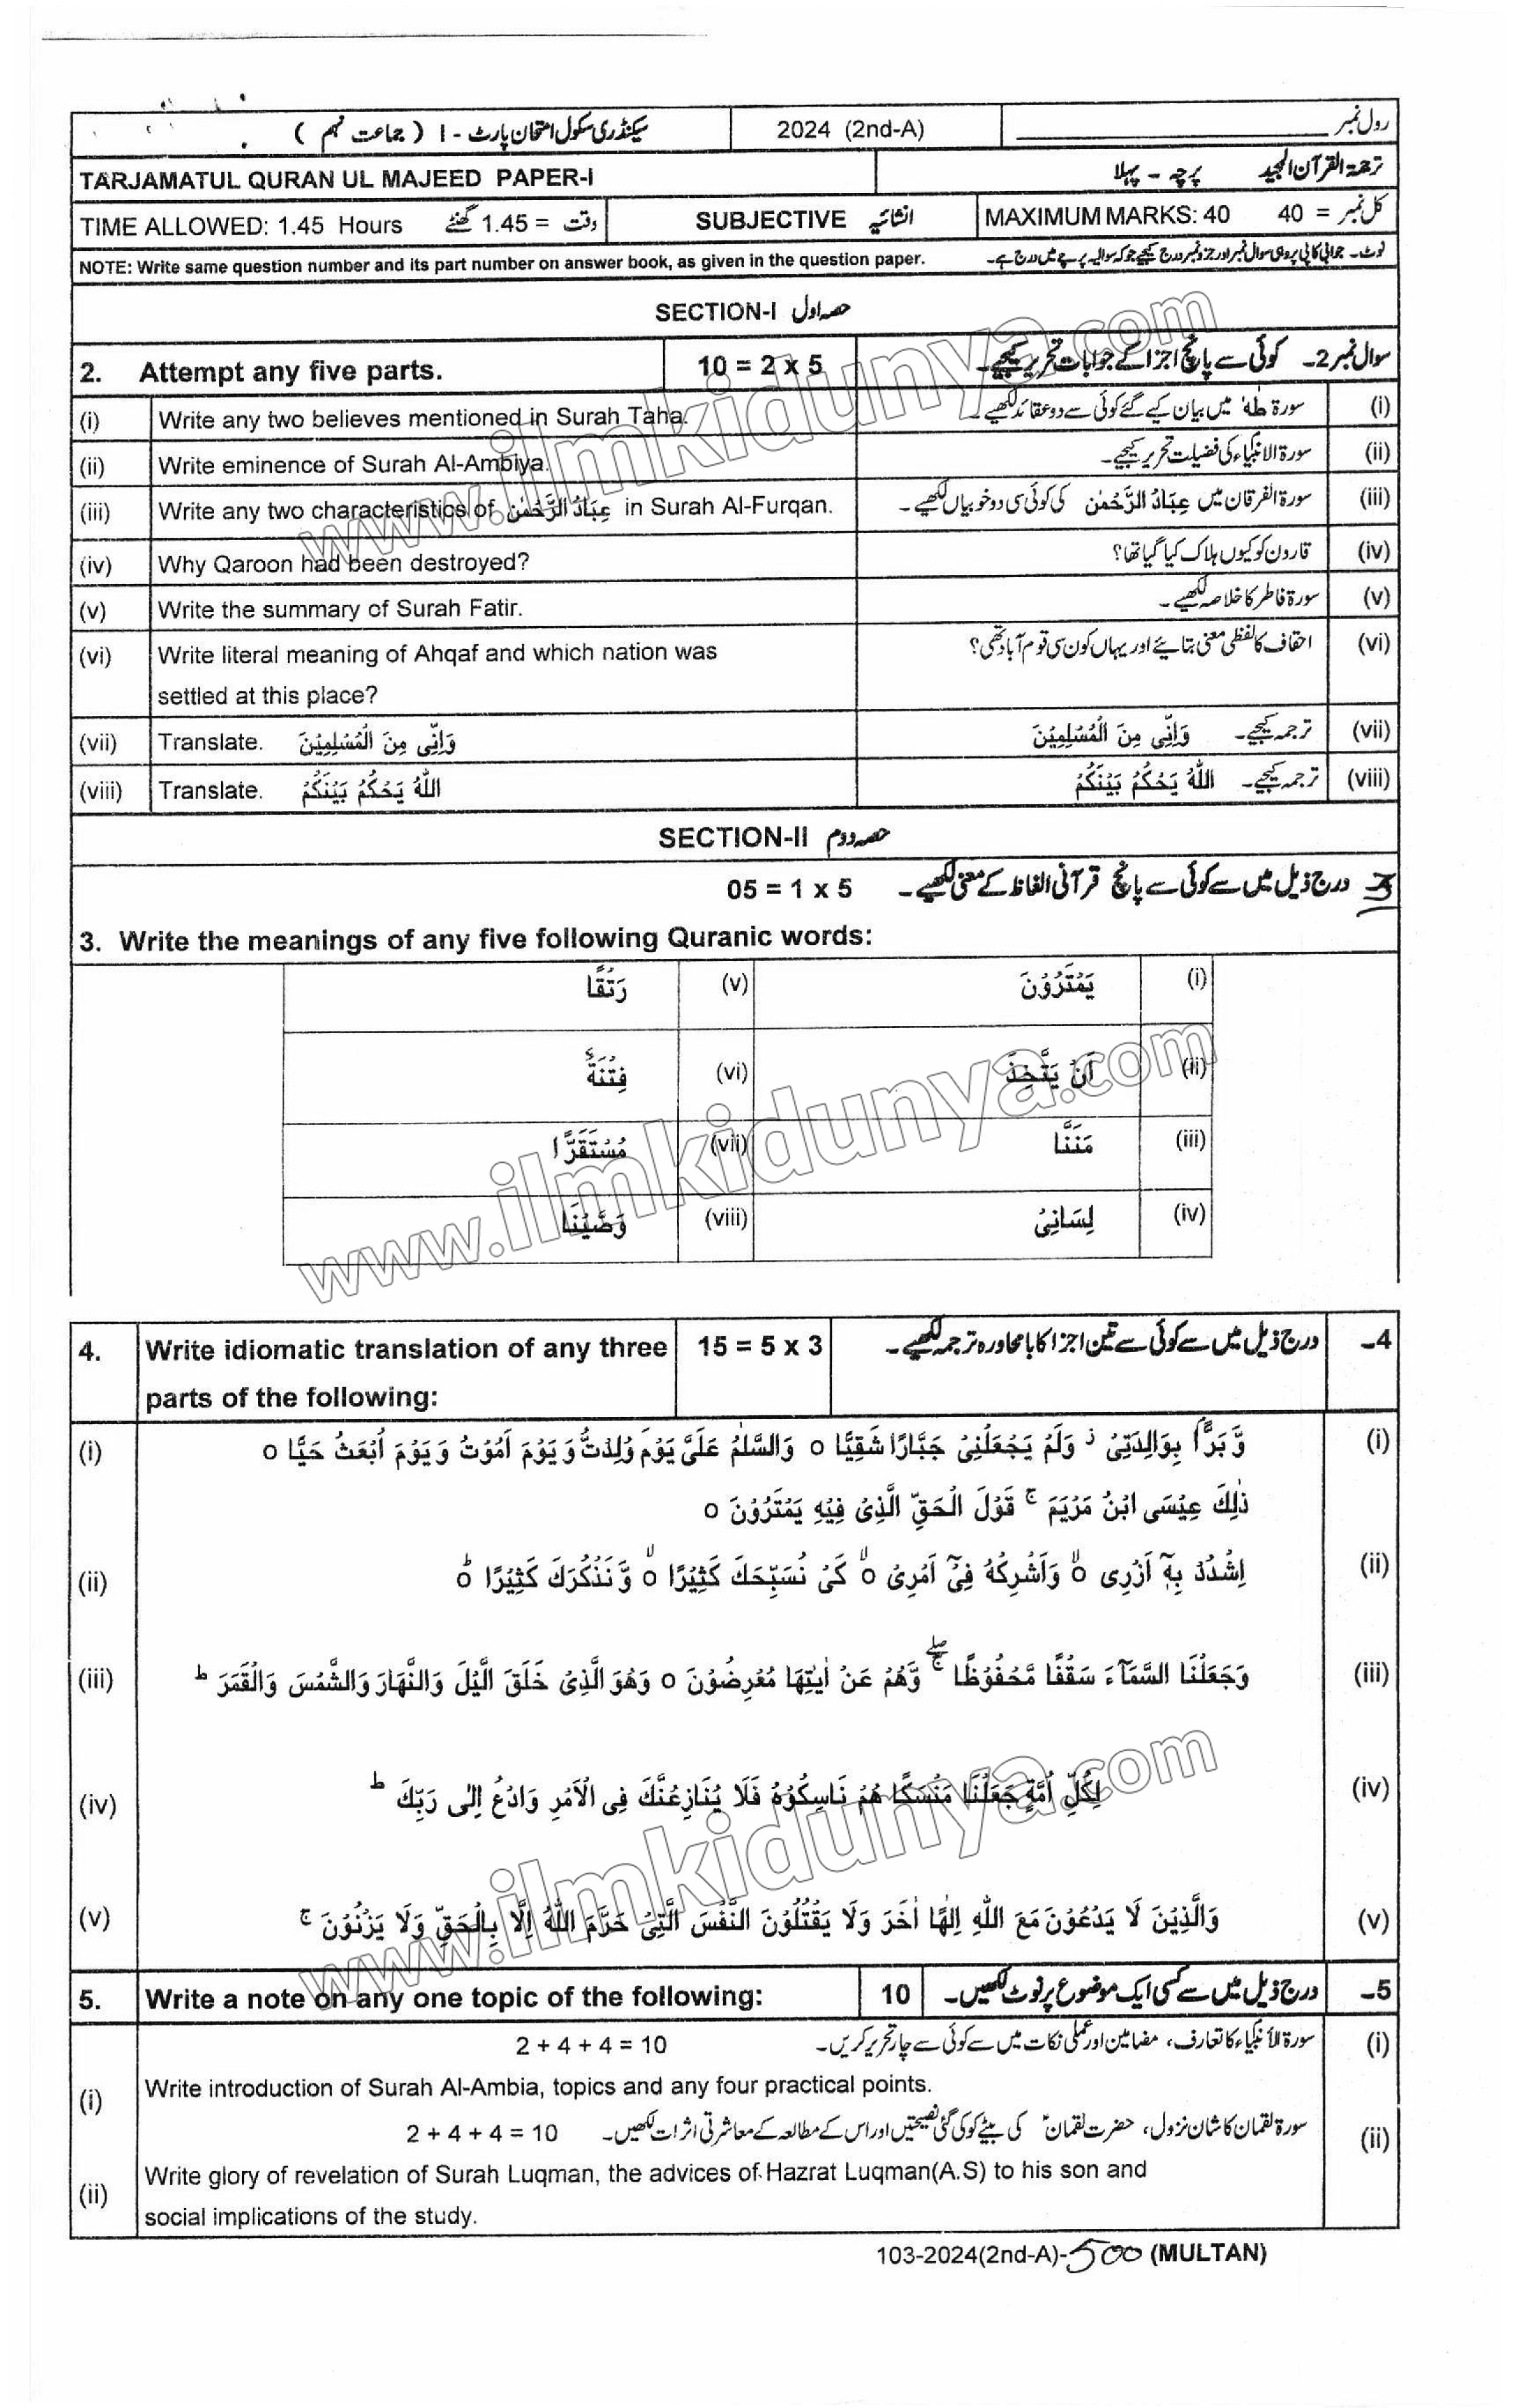 سیکنڈری سکول امتحان پارٹ - I ( جماعت نہم )
2024 (2nd-A)
رول نمبر
TARJAMATUL QURAN UL MAJEED PAPER-I
ترجمۃ القرآن المجید پرچہ - پہلا
TIME ALLOWED: 1.45 Hours وقت = 1.45 گھنٹے
SUBJECTIVE انشائیہ
MAXIMUM MARKS: 40 کل نمبر = 40
NOTE: Write same question number and its part number on answer book, as given in the question paper.
نوٹ۔ جوابی کاپی پر وہی سوال نمبر اور جز نمبر درج کیجیے جو کہ سوالیہ پرچے میں درج ہے۔
SECTION-I حصہ اول
2. Attempt any five parts. 10 = 2 x 5 سوال نمبر 2۔ کوئی سے پانچ اجزا کے جوابات تحریر کیجیے۔
(i) Write any two believes mentioned in Surah Taha. سورۃ طٰہٰ میں بیان کیے گئے کوئی سے دو عقائد لکھیے۔ (i)
(ii) Write eminence of Surah Al-Ambiya. سورۃ الانبیاء کی فضیلت تحریر کیجیے۔ (ii)
(iii) Write any two characteristics of عِبَادُ الرَّحْمٰن in Surah Al-Furqan. سورۃ الفرقان میں عِبَادُ الرَّحْمٰن کی کوئی سی دو خوبیاں لکھیے۔ (iii)
(iv) Why Qaroon had been destroyed? قارون کو کیوں ہلاک کیا گیا تھا؟ (iv)
(v) Write the summary of Surah Fatir. سورۃ فاطر کا خلاصہ لکھیے۔ (v)
(vi) Write literal meaning of Ahqaf and which nation was احقاف کا لفظی معنی بتایئے اور یہاں کون سی قوم آباد تھی؟ (vi)
settled at this place?
(vii) Translate. وَاِنِّی مِنَ الْمُسْلِمِیْنَ ترجمہ کیجیے۔ وَاِنِّی مِنَ الْمُسْلِمِیْنَ (vii)
(viii) Translate. اَللّٰہُ یَحْکُمُ بَیْنَکُمْ ترجمہ کیجیے۔ اَللّٰہُ یَحْکُمُ بَیْنَکُمْ (viii)
SECTION-II حصہ دوم
3 درج ذیل میں سے کوئی سے پانچ قرآنی الفاظ کے معنی لکھیے۔ 05 = 1 x 5
3. Write the meanings of any five following Quranic words:
(i) یَمْتَرُوْنَ (v) رَتْقًا
(ii) اَنْ یَّتَّخِذَ (vi) فِتْنَةً
(iii) مَنَنَّا (vii) مُسْتَقَرًّا
(iv) لِسَانِیْ (viii) وَصَّیْنَا
4. Write idiomatic translation of any three 15 = 5 x 3 درج ذیل میں سے کوئی سے تین اجزا کا بامحاورہ ترجمہ لکھیے۔ 4۔
parts of the following:
(i) وَّ بَرًّا بِوَالِدَتِیْ ز وَلَمْ یَجْعَلْنِیْ جَبَّارًا شَقِیًّا o وَالسَّلٰمُ عَلَیَّ یَوْمَ وُلِدْتُّ وَ یَوْمَ اَمُوْتُ وَ یَوْمَ اُبْعَثُ حَیًّا o (i)
ذٰلِكَ عِیْسَی ابْنُ مَرْیَمَ ج قَوْلَ الْحَقِّ الَّذِیْ فِیْهِ یَمْتَرُوْنَ o
(ii) اشْدُدْ بِهٖٓ اَزْرِی o لا وَاَشْرِكْهُ فِیْٓ اَمْرِیْ o لا كَیْ نُسَبِّحَكَ كَثِیْرًا o لا وَّ نَذْكُرَكَ كَثِیْرًا o ط (ii)
(iii) وَجَعَلْنَا السَّمَآءَ سَقْفًا مَّحْفُوْظًا ج صلے وَّهُمْ عَنْ اٰیٰتِهَا مُعْرِضُوْنَ o وَهُوَ الَّذِیْ خَلَقَ الَّیْلَ وَالنَّهَارَ وَالشَّمْسَ وَالْقَمَرَ ط (iii)
(iv) لِكُلِّ اُمَّةٍ جَعَلْنَا مَنْسَكًا هُمْ نَاسِكُوْهُ فَلَا یُنَازِعُنَّكَ فِی الْاَمْرِ وَادْعُ اِلٰی رَبِّكَ ط (iv)
(v) وَالَّذِیْنَ لَا یَدْعُوْنَ مَعَ اللّٰهِ اِلٰهًا اٰخَرَ وَلَا یَقْتُلُوْنَ النَّفْسَ الَّتِیْ حَرَّمَ اللّٰهُ اِلَّا بِالْحَقِّ وَلَا یَزْنُوْنَ ج (v)
5. Write a note on any one topic of the following: 10 درج ذیل میں سے کسی ایک موضوع پر نوٹ لکھیں۔ 5۔
سورۃ الأنبیاء کا تعارف، مضامین اور عملی نکات میں سے کوئی سے چار تحریر کریں۔ 2 + 4 + 4 = 10 (i)
(i) Write introduction of Surah Al-Ambia, topics and any four practical points.
سورۃ لقمان کا شان نزول، حضرت لقمانؑ کی بیٹے کو کی گئی نصیحتیں اور اس کے مطالعہ کے معاشرتی اثرات لکھیں۔ 2 + 4 + 4 = 10 (ii)
(ii) Write glory of revelation of Surah Luqman, the advices of Hazrat Luqman(A.S) to his son and
social implications of the study.
103-2024(2nd-A)-500 (MULTAN)
www.ilmkidunya.com
www.ilmkidunya.com
www.ilmkidunya.com